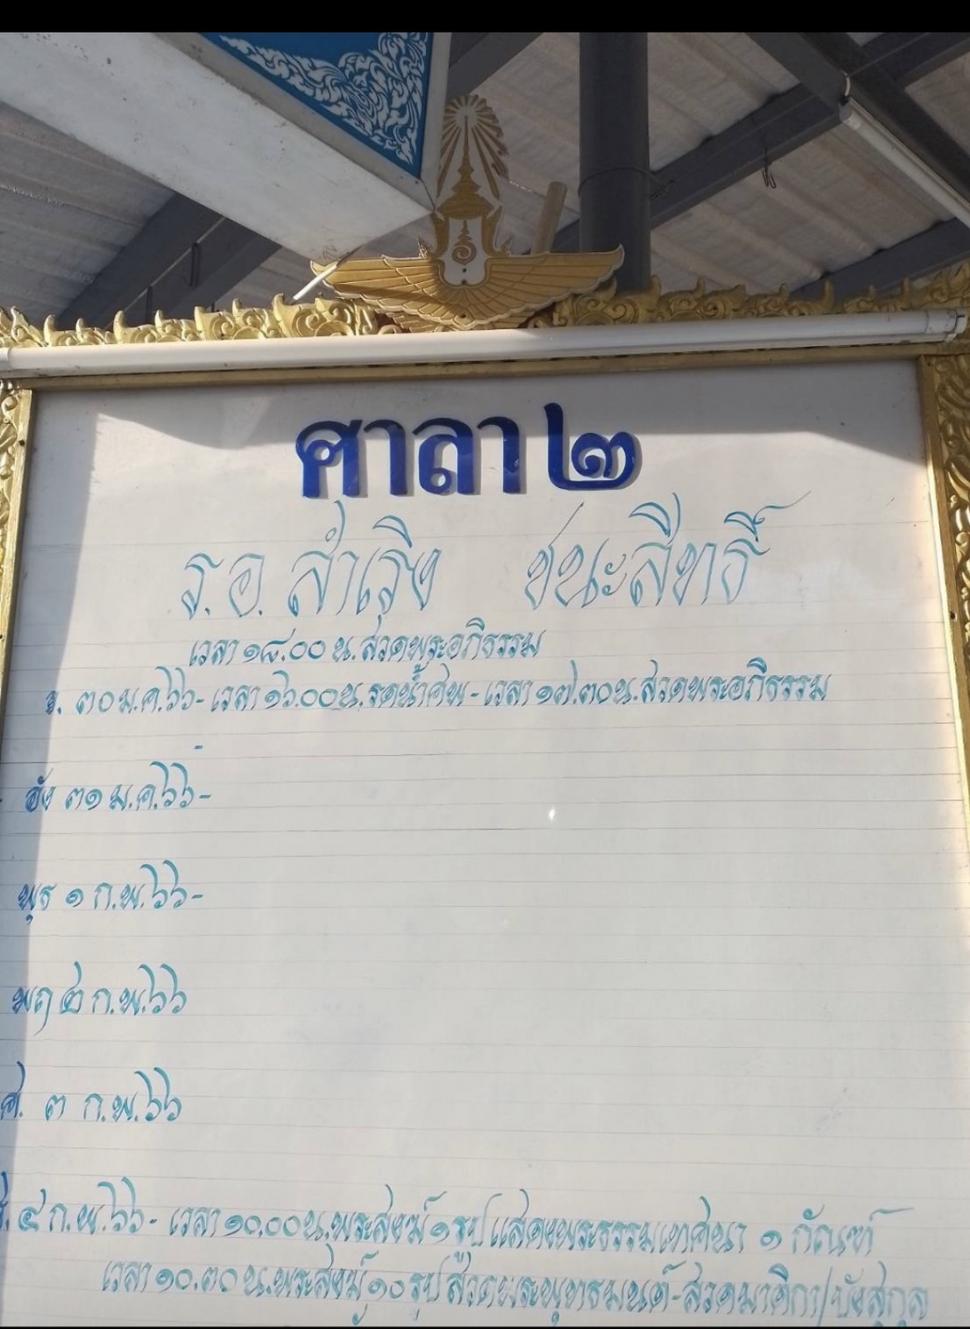 ศาลา ๒
ร.อ. สำเริง ชนะสิทธิ์
เวลา ๑๘.๐๐ น. สวดพระอภิธรรม
จ. ๓๐ ม.ค.๖๖- เวลา ๑๖.๐๐น. รดน้ำศพ - เวลา ๑๗.๓๐น. สวดพระอภิธรรม
-
อัง ๓๑ ม.ค.๖๖-
พุธ ๑ ก.พ.๖๖-
พฤ ๒ ก.พ.๖๖
ศ. ๓ ก.พ.๖๖
ส. ๔ ก.พ.๖๖- เวลา ๑๐.๐๐น. พระสงฆ์ ๑ รูป แสดงพระธรรมเทศนา ๑ กัณฑ์
เวลา ๑๐.๓๐ น. พระสงฆ์ ๑๐ รูป สวดพระพุทธมนต์-สวดมาติกา/บังสุกุล